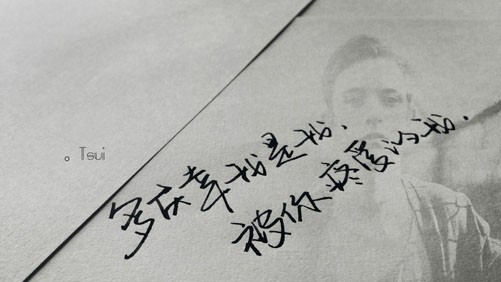 。Tsui
多庆幸我是我,
被你疼爱的我.